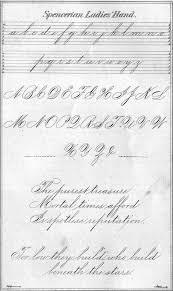 Spencerian Ladies' Hand.
a b c d e f g h i j k l m n o
p q r s t u v w x y z
A B C D E F G H I J K L
M N O P Q R S T U V W
X Y Z &
The purest treasure
Mortal times afford
Is spotless reputation.
Too low they build who build
beneath the stars.